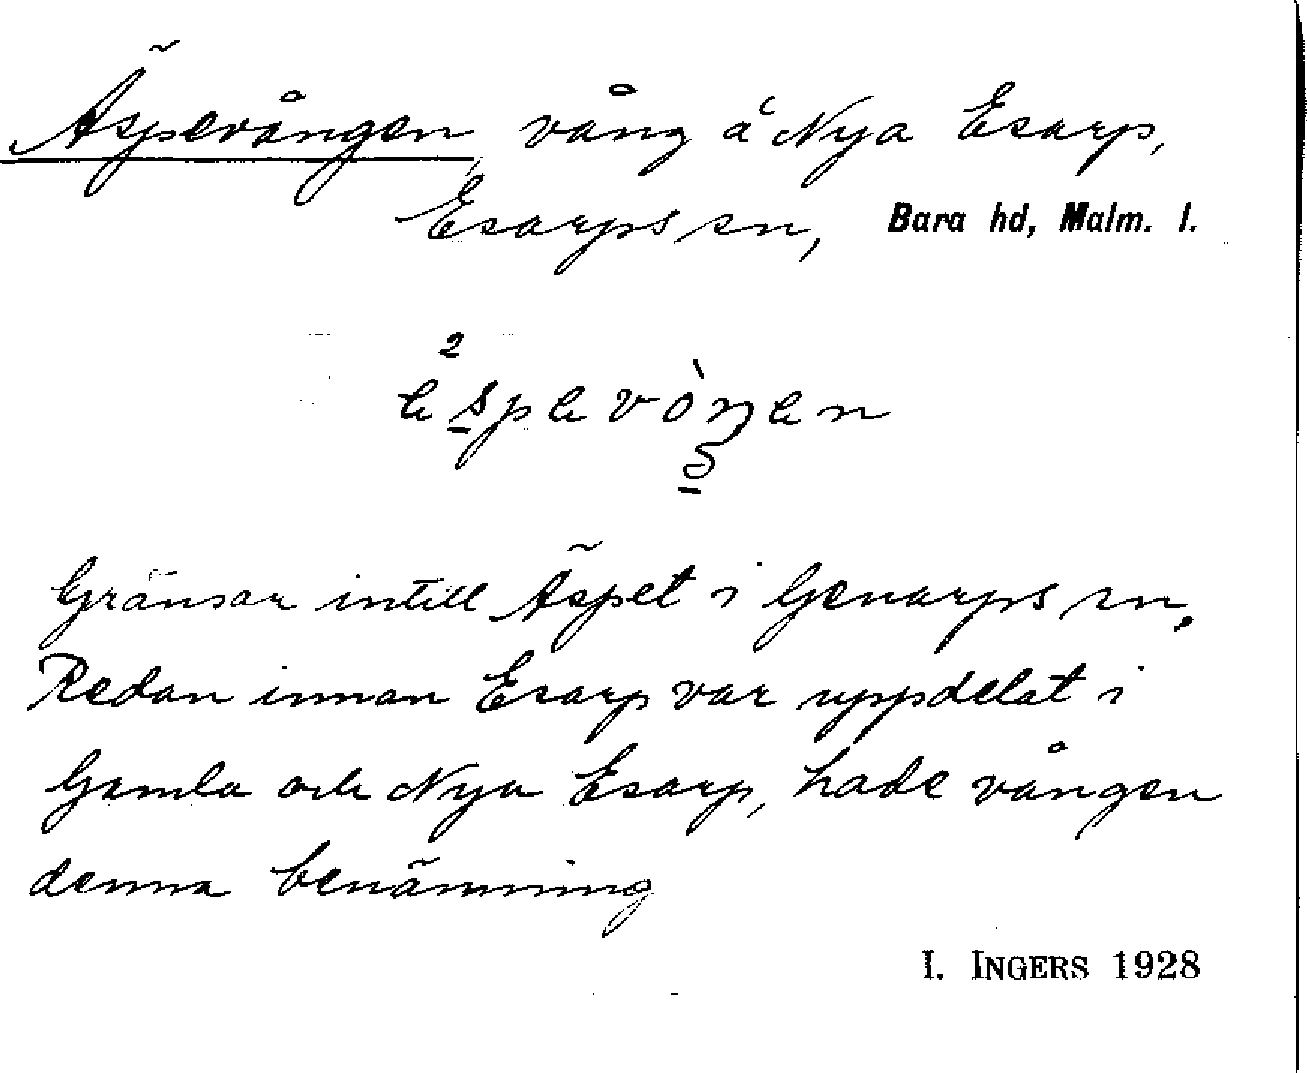 Äspevången, vång å Nya Esarp,
Esarps sn, Bara hd, Malm. l.
Gränsar intill Äspet i Genarps sn.
Redan innan Esarp var uppdelat i
Gamla och Nya Esarp, hade vången
denna benämning
I. INGERS 1928